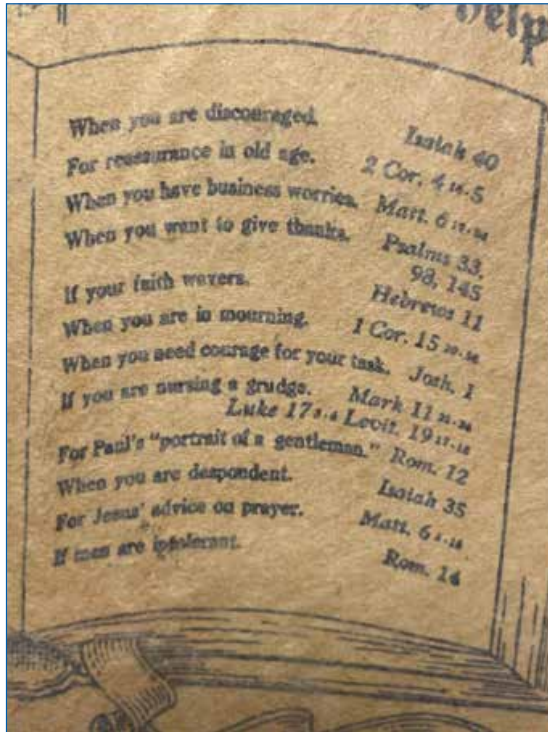 help
When you are discouraged. Isaiah 40
For reassurance in old age. 2 Cor. 4 16-5
When you have business worries. Matt. 6
When you want to give thanks. Psalms 33,
98, 145
If your faith wavers. Hebrews 11
When you are in mourning. 1 Cor. 15
When you need courage for your task. Josh. 1
If you are nursing a grudge. Mark 11
Luke 17 Levit. 19 17-18
For Paul's "portrait of a gentleman." Rom. 12
When you are despondent. Isaiah 35
For Jesus' advice on prayer. Matt. 6
If men are intolerant. Rom. 14